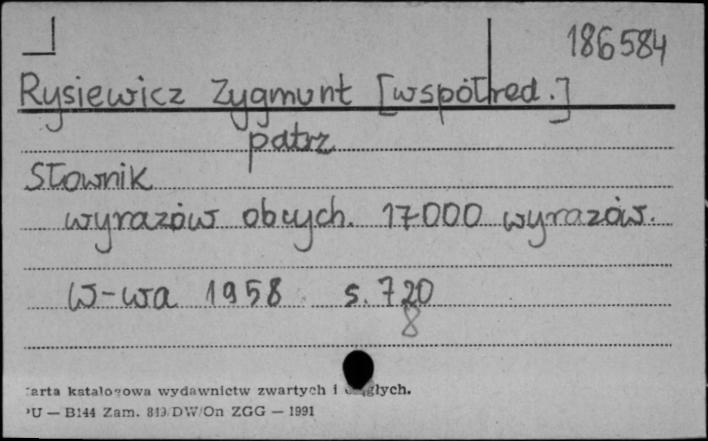 186584
Rysiewicz Zygmunt [współred.]
patrz
Słownik
wyrazów obcych. 17000 wyrazów.
W-wa 1958 s. 720
8
arta katalogowa wydawnictw zwartych i
PU — B144 Zam. 849/DW/On ZGG — 1991